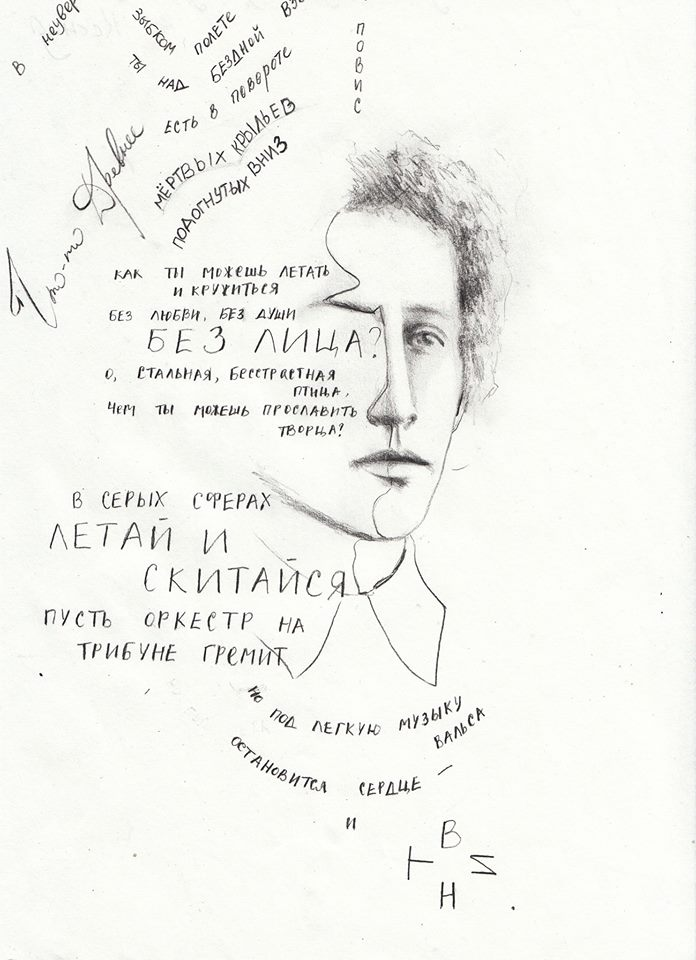 В неувер
ЗЫБКОМ ПОЛЕТЕ
ТЫ НАД БЕЗДНОЙ ВЗВ
ПОВИС
Что-то Древнее
ЕСТЬ В повороте
МЁРТВЫХ КРЫЛЬЕВ
ПОДОГНУТЫХ ВНИЗ
КАК ТЫ МОЖЕШЬ ЛЕТАТЬ
И КРУЖИТЬСЯ
БЕЗ ЛЮБВИ, БЕЗ ДУШИ
БЕЗ ЛИЦА?
О, СТАЛЬНАЯ, БЕССТРАСТНАЯ
ПТИЦА,
ЧЕМ ТЫ МОЖЕШЬ ПРОСЛАВИТЬ
ТВОРЦА?
В СЕРЫХ СФЕРАХ
ЛЕТАЙ И
СКИТАЙСЯ
ПУСТЬ ОРКЕСТР НА
ТРИБУНЕ ГРЕМИТ
НО ПОД ЛЕГКУЮ МУЗЫКУ
ВАЛЬСА
ОСТАНОВИТСЯ СЕРДЦЕ –
И
ВИНТ.